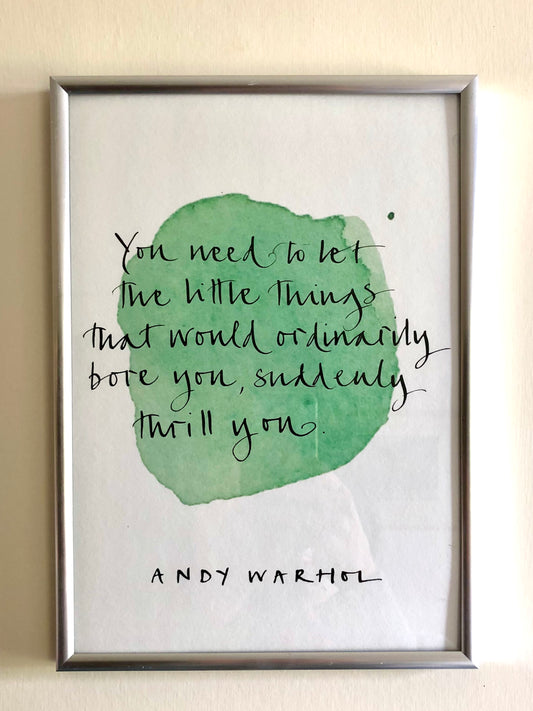 You need to let
the little things
that would ordinarily
bore you, suddenly
thrill you.
ANDY WARHOL